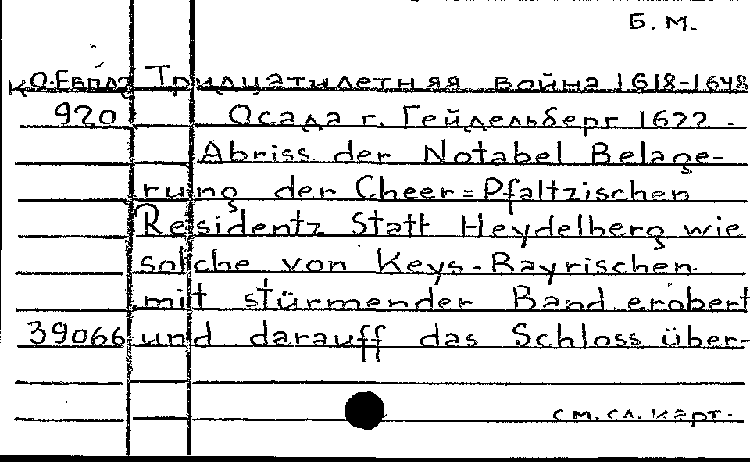 Б. М.
К О.Евпл2 Тридцатилетняя война 1618-1648
920 Осада г. Гейдельберг 1622 -
Abriss der Notabel Belage-
rung der Cheer=Pfaltzischen
Residentz Statt Heydelberg wie
solche von Keys-Bayrischen
mit stürmender Band erobert
39066 und darauff das Schloss über-
см. сл. карт.